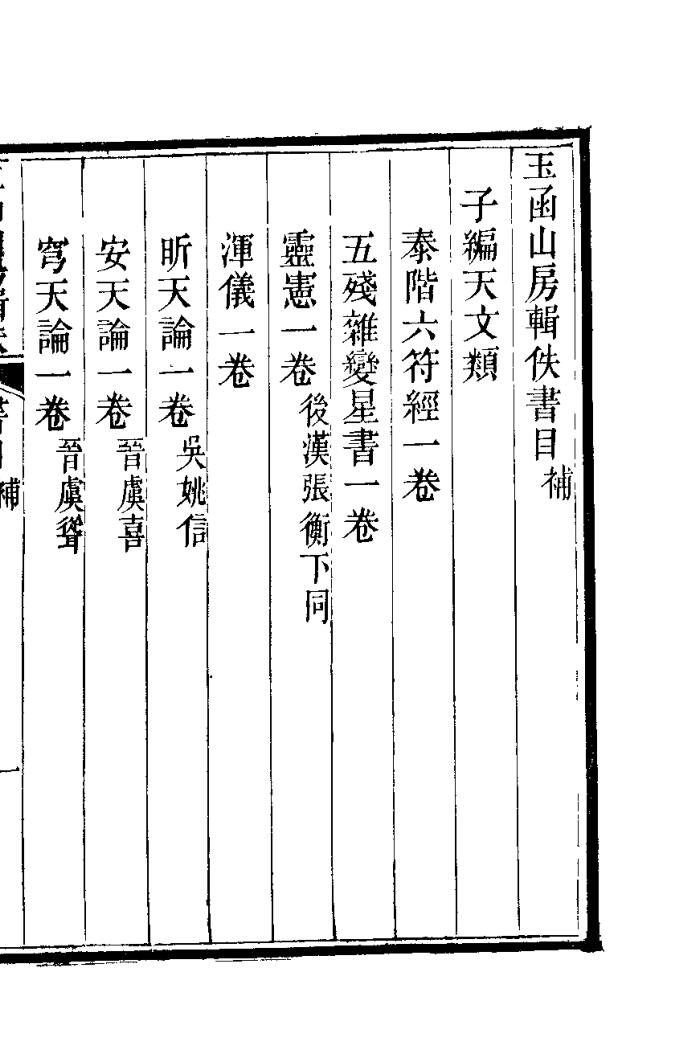 玉函山房輯佚書目補
子編天文類
泰階六符經一卷
五殘雜變星書一卷
靈憲一卷後漢張衡下同
渾儀一卷
昕天論一卷吳姚信
安天論一卷晉虞喜
穹天論一卷晉虞聳
補